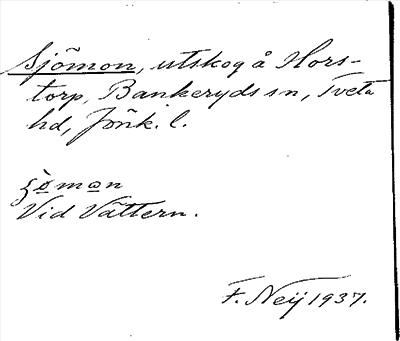 Sjömon, utskog å Hors-
torp, Bankeryds sn, Tveta
hd, Jönk. l.
ʒömon
Vid Vättern.
F. Neij 1937.